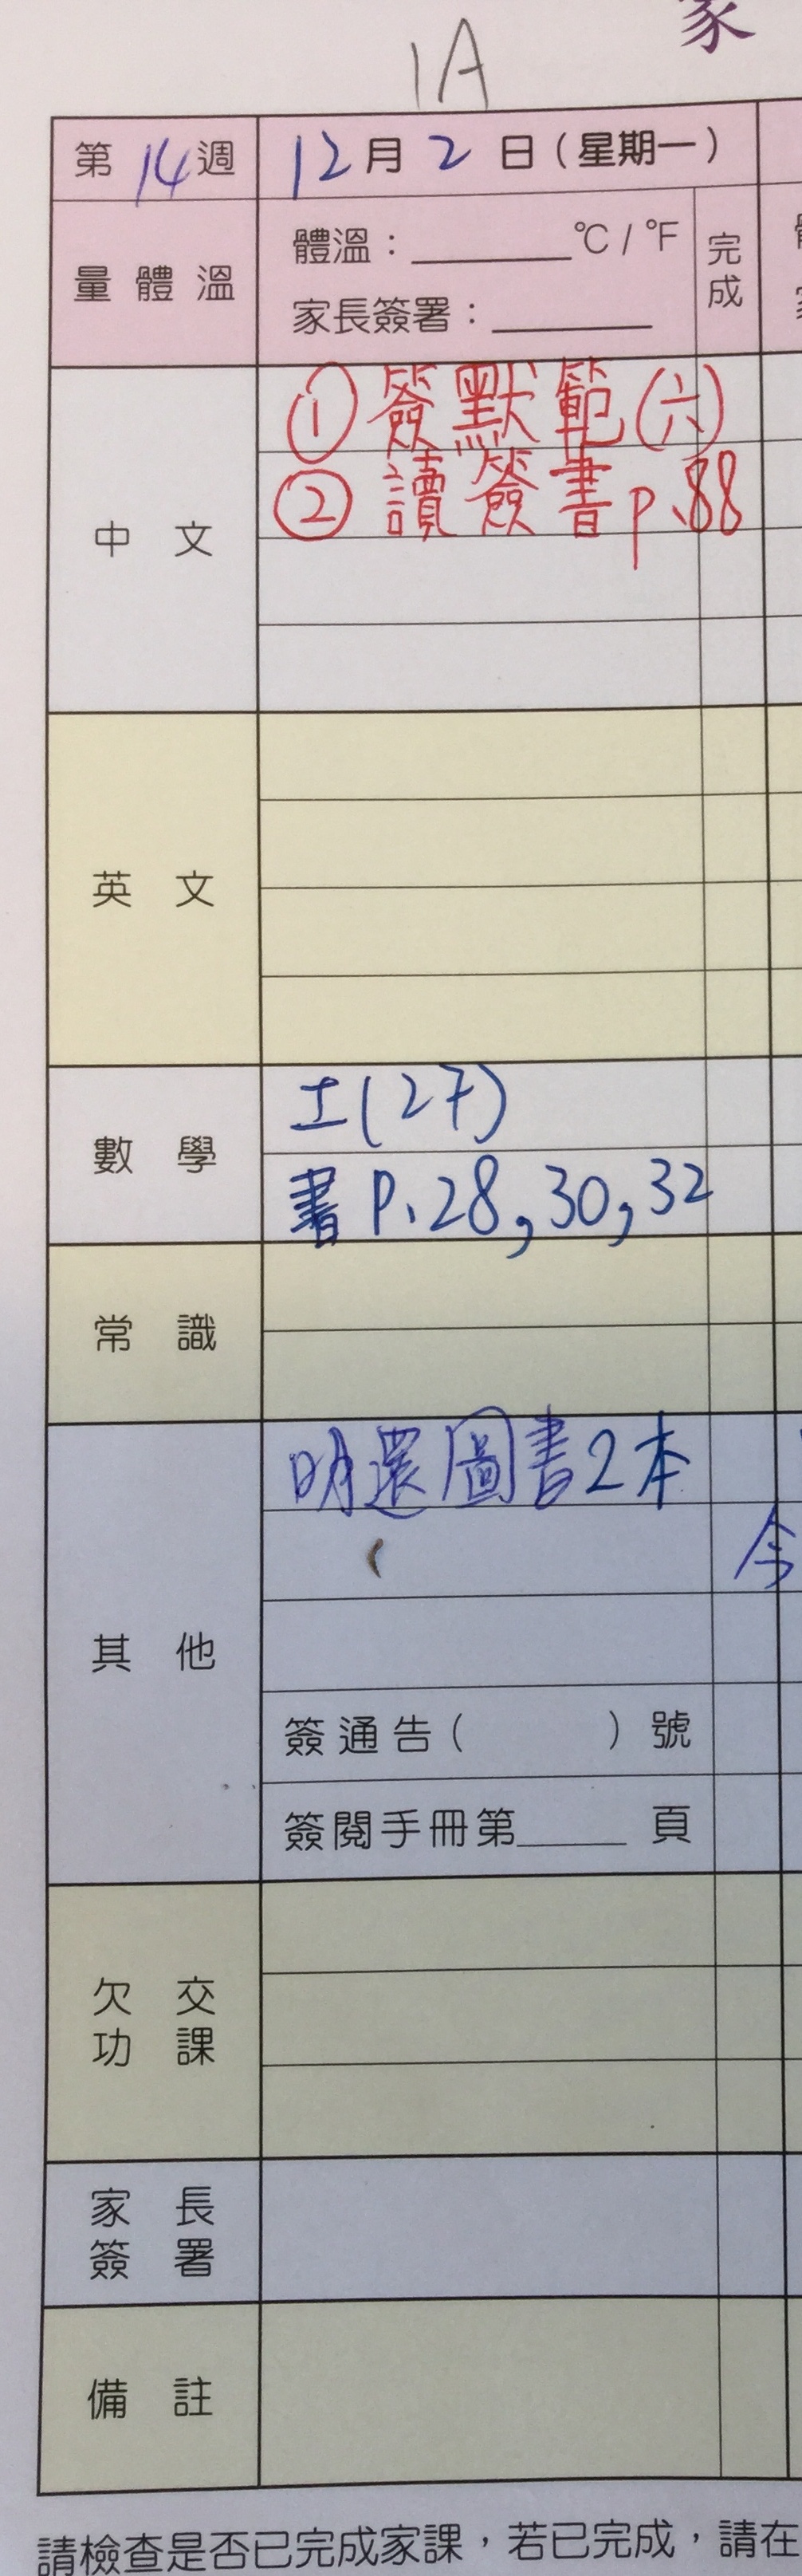 家
1A
第 14 週 12 月 2 日（星期一）
量體溫 體溫：________°C / °F 完成
家長簽署：________
中文 ① 簽默範(六)
② 讀簽書p.88
英文
數學 工(27)
書 P.28,30,32
常識
其他 明還圖書2本
今
簽通告（ ）號
簽閱手冊第_____ 頁
欠交功課
家長簽署
備註
請檢查是否已完成家課，若已完成，請在